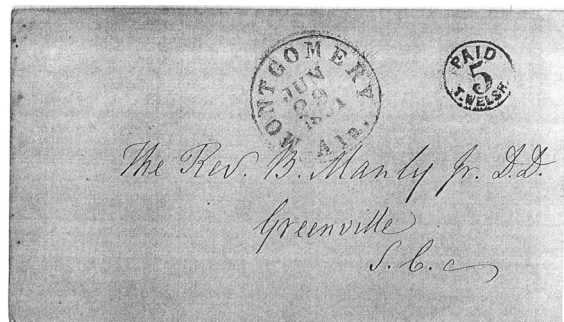 MONTGOMERY Ala.
JUN
PAID
5
T. WELSH.
The Rev. B. Manly Jr. D.D.
Greenville
S. C.